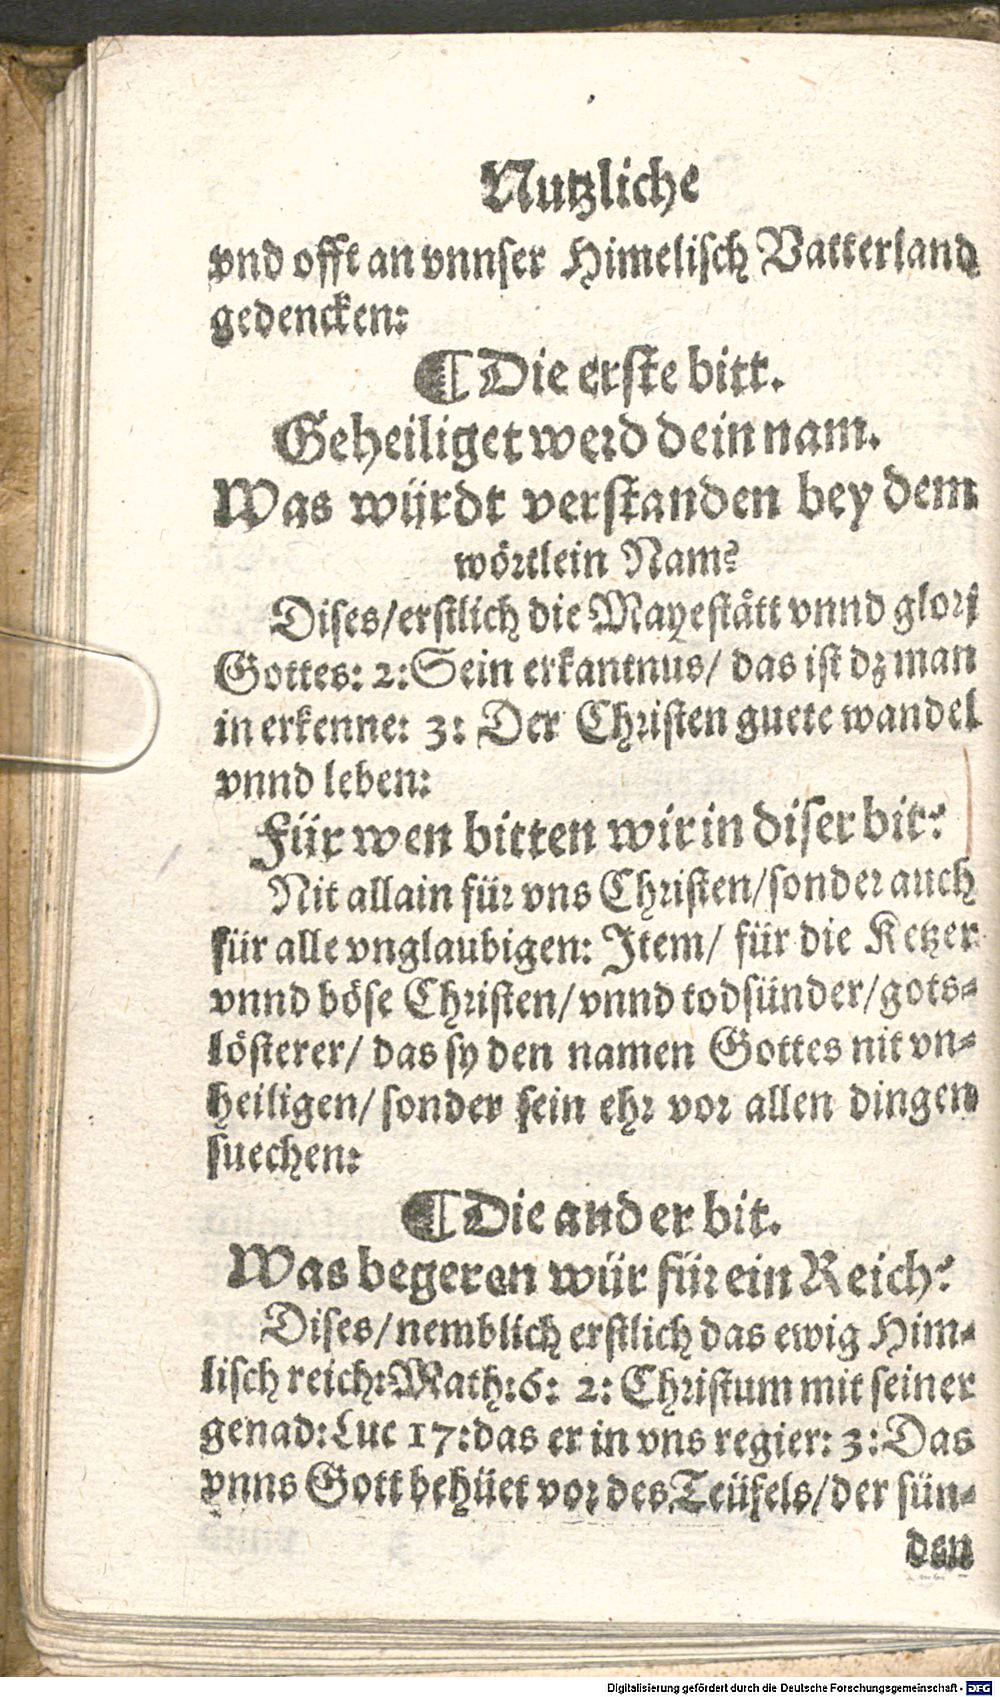 Nutzliche
vnd offt an vnnser Himelisch Vatterland
gedencken:
¶ Die erste bitt.
Geheiliget werd dein nam.
Was würdt verstanden bey dem
wörtlein Nam?
Dises/erstlich die Mayestätt vnnd glorj
Gottes: 2: Sein erkantnus/ das ist dz man
in erkenne: 3: Der Christen guete wandel
vnnd leben:
Für wen bitten wir in diser bit?
Nit allain für vns Christen/sonder auch
für alle vnglaubigen: Item/ für die Ketzer
vnnd böse Christen/vnnd todsünder/gots-
lösterer/ das sy den namen Gottes nit vn-
heiligen/sonder sein ehr vor allen dingen
suechen:
¶ Die ander bit.
Was begeren wür für ein Reich?
Dises/nemblich erstlich das ewig Him-
lisch reich: Math: 6: 2: Christum mit seiner
genad: Luc 17: das er in vns regier: 3: Das
vnns Gott behüet vor des Teüfels/der sün-
den
Digitalisierung gefördert durch die Deutsche Forschungsgemeinschaft - DFG